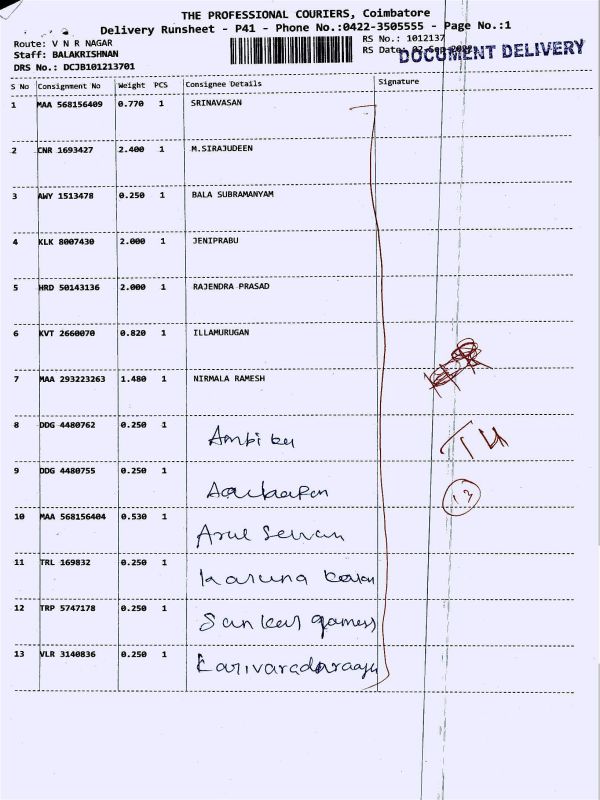 THE PROFESSIONAL COURIERS, Coimbatore
Delivery Runsheet - P41 - Phone No.:0422-3505555 - Page No.:1
Route: V N R NAGAR
RS No.: 1012137
Staff: BALAKRISHNAN
RS Date:
DOCUMENT DELIVERY
DRS No.: DCJB101213701
S No Consignment No Weight PCS Consignee Details Signature
1 MAA 568156409 0.770 1 SRINAVASAN
2 CNR 1693427 2.400 1 M.SIRAJUDEEN
3 AWY 1513478 0.250 1 BALA SUBRAMANYAM
4 KLK 8007430 2.000 1 JENIPRABU
5 HRD 50143136 2.000 1 RAJENDRA PRASAD
6 KVT 2660070 0.820 1 ILLAMURUGAN
7 MAA 293223263 1.480 1 NIRMALA RAMESH
8 DDG 4480762 0.250 1
9 DDG 4480755 0.250 1
10 MAA 568156404 0.530 1 Arul
11 TRL 169832 0.250 1 Karuna
12 TRP 5747178 0.250 1
13 VLR 3140836 0.250 1 Karivaradaraaju
13